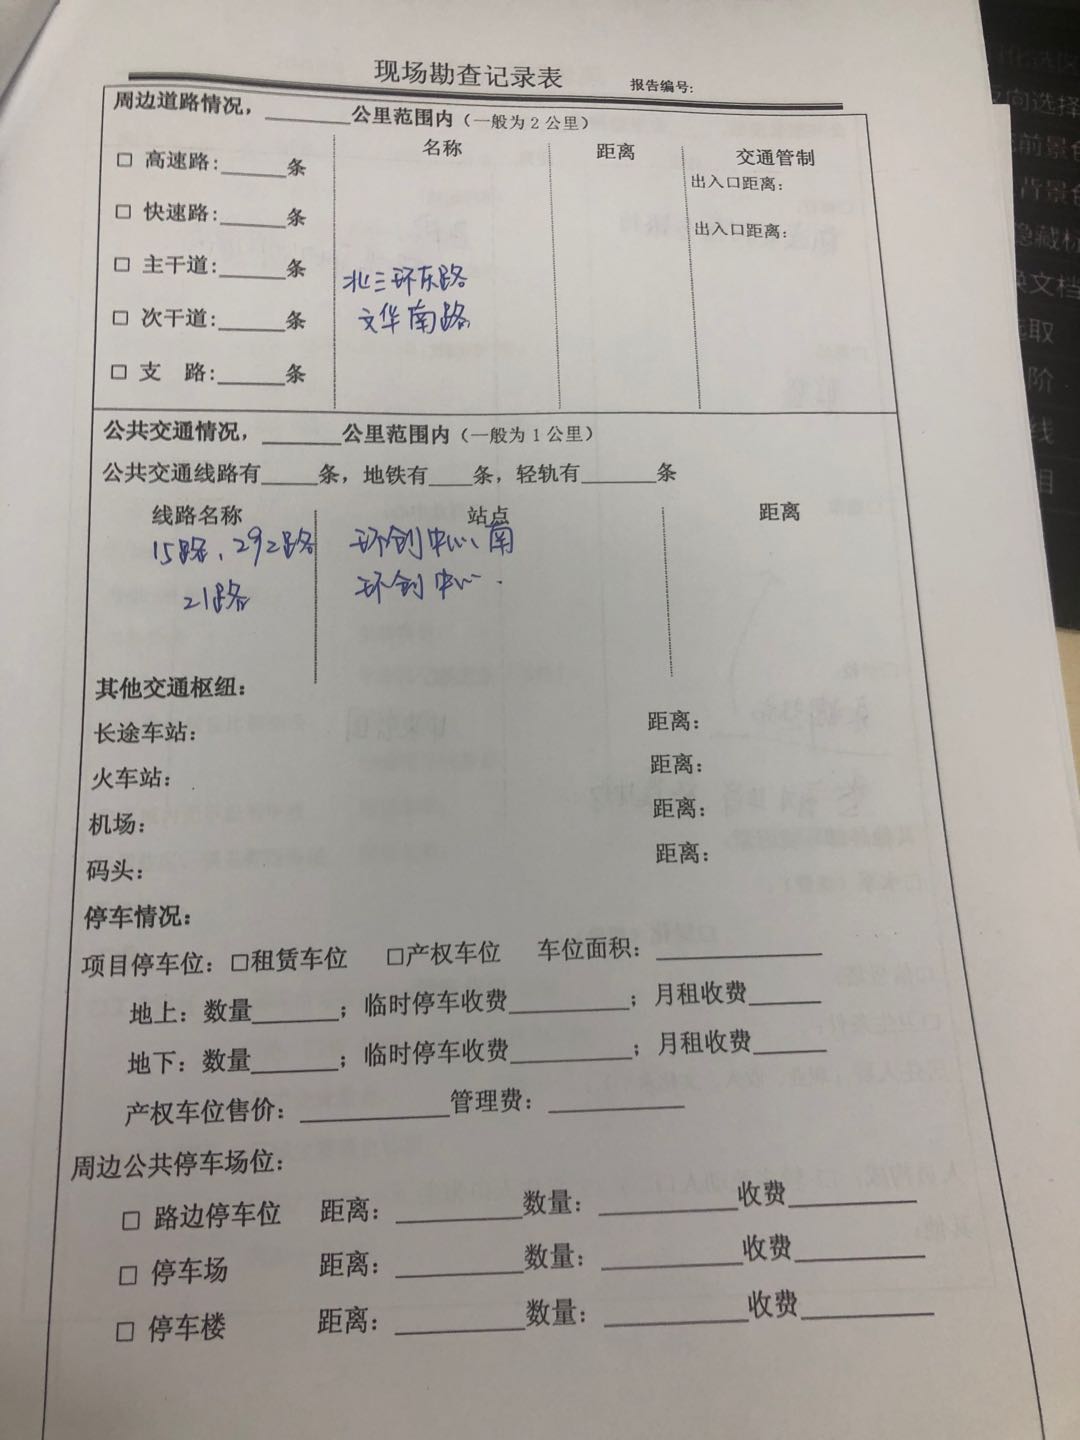 现场勘查记录表 报告编号:
周边道路情况，________公里范围内（一般为2公里）
名称 距离 交通管制
□ 高速路:______条 出入口距离:
□ 快速路:______条 出入口距离:
□ 主干道:______条 北三环东路
□ 次干道:______条 文华南路
□ 支 路:______条
公共交通情况，_______公里范围内（一般为1公里）
公共交通线路有_____条，地铁有____条，轻轨有_______条
线路名称 站点 距离
15路、292路 环创中心、南
21路 环创中心.
其他交通枢纽:
长途车站: 距离:
火车站: 距离:
机场: 距离:
码头: 距离:
停车情况:
项目停车位: □租赁车位 □产权车位 车位面积:______________
地上: 数量_______; 临时停车收费__________; 月租收费______
地下: 数量_______; 临时停车收费__________; 月租收费______
产权车位售价:______________管理费:___________
周边公共停车场位:
□ 路边停车位 距离:__________数量:___________收费__________
□ 停车场 距离:__________数量:___________收费__________
□ 停车楼 距离:__________数量:___________收费__________
选择
前景色
背景色
隐藏标
换文档
选取
阶
线
相